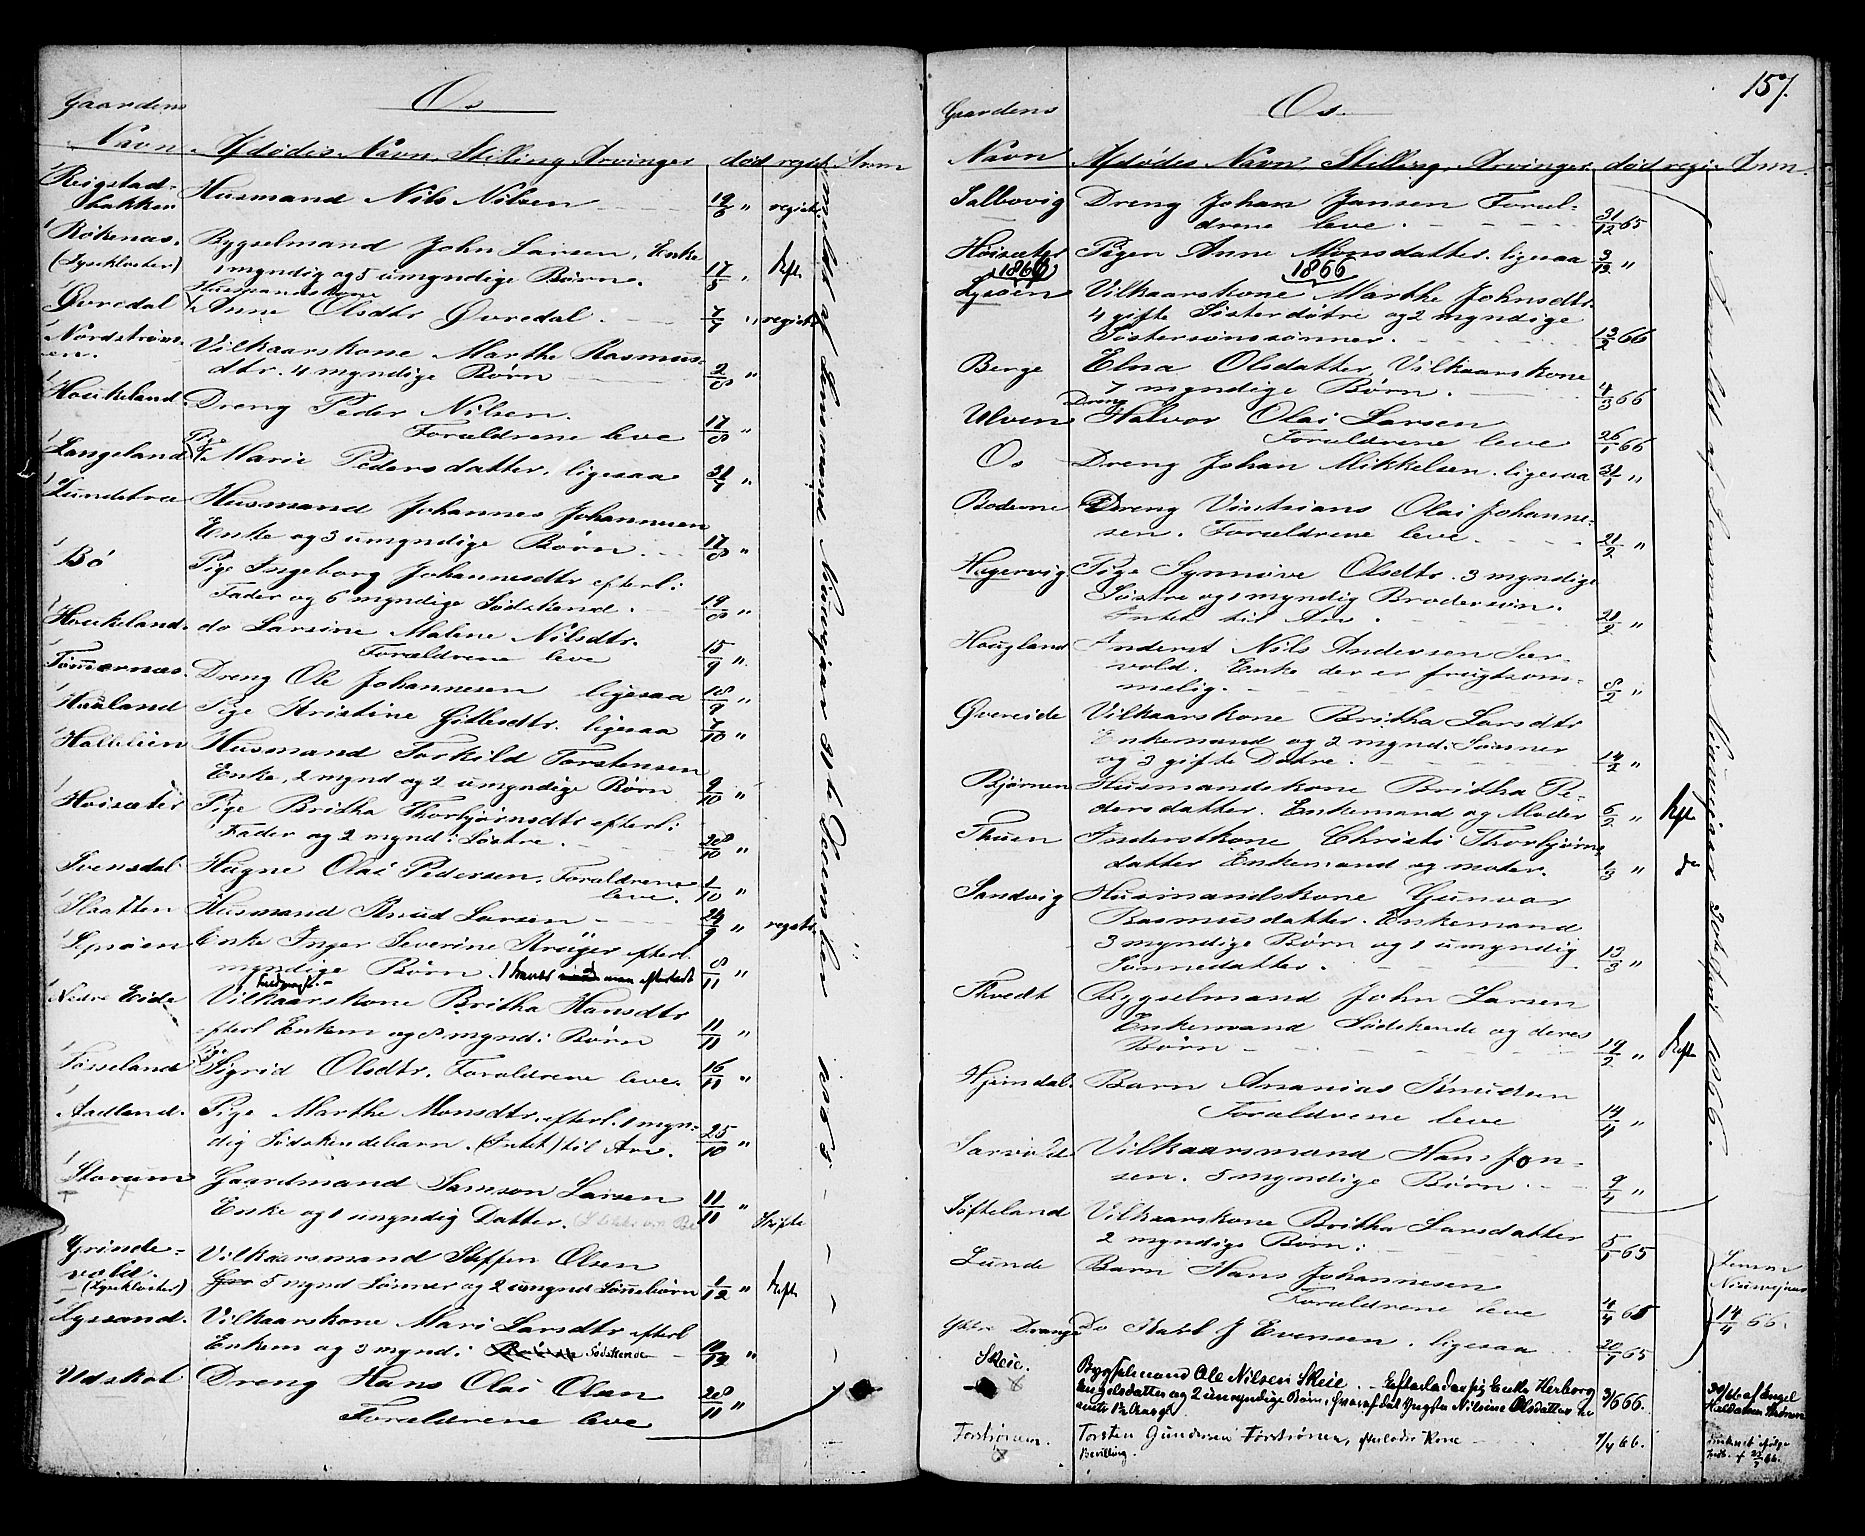 Gaardens
Os
Navn Afdødes Navn, Stilling, Arvinger død regist. Anm
Reigstad-
bakken Husmand Nils Nilsen 12/6 " registr.
Røkenæs. Bygselmand John Larsen, Enke
(Lysekloster) 1 myndig og 5 umyndige Børn. 17/5 " Skft.
Husmandskone
Øvredal Anne Olsdtr Øvredal. 7/7 " registr.
Nordstrøm-
en. Vilkaarskone Marthe Rasmus-
dtr. 4 myndige Børn 2/8 "
Houkeland. Dreng Peder Nilsen.
Forældrene leve 17/8 "
Langeland Pige Marie Pedersdatter, ligesaa 31/7 "
Lundetræ Husmand Johannes Johannesen
Enke og 3 umyndige Børn. 17/8 "
Bø Pige Ingeborg Johannesdtr efterl:
Fader og 6 myndige Sødskend. 19/8 "
Houkeland. do Larsine Malene Nilsdtr.
Forældrene leve 15/9 "
Tømmernæs. Dreng Ole Johannesen ligesaa 18/9 "
Haaland Pige Kristine Gitlesdtr. ligesaa 7/10 "
Halhleien Husmand Torkild Torstensen
Enke, 2 mynd og 2 umyndige Børn 9/10 "
Hoisæter Pige Britha Thorbjørnsdtr efterl:
Fader og 2 mynd: Søstre. 28/10 "
Svensdal Hagne Olai Pedersen, Forældrene
leve. 1/10 "
Slaatten Husmand Knud Larsen 24/9 " registr.
Lysøen Enke Inger Severine Krüger efterl.
myndige Børn. 11 "
Nedre Eide Vilkaarskone Britha Hansdtr
efterl Enkem og 8 mynd: Børn 11/11 "
Tøsseland Sigrid Olsdtr. Forældrene leve. 16/11 "
Aadland. Pige Marthe Monsdtr. efterl. 1 myn-
dig Sødskendebarn. (Intet) til Arv. 25/10 "
Storum Gaardmand Samson Larsen
Enke og 1 umyndig Datter. 11/11 " Skifte
Grinde-
vold. Vilkaarsmand Steffen Olsen
(Lysekloster) 5 mynd Sønner og 2 umynd Sønnebørn 1/12 " Skft.
Lyssand. Vilkaarskone Mari Larsdtr efterl
Enkem og 3 mynd: Sødskende 10/12 "
Udskot Dreng Hans Olai Olsen 28/11 "
Forældrene leve
Anmeldt af Lensmand Nivenjær 31te December 1865
157.
Gaardens
Os.
Navn Afdødes Navn, Stilling, Arvinger død regi. Anm.
Salbovig Dreng Johan Jansen Foræl-
drene leve. 31/12 65
Høisæter Pigen Anne Monsdatter. ligesaa 9/12 "
1866 1866
Lysøen Vilkaarskone Marthe Johnsdtr
4 gifte Søsterdøtre og 2 myndige
Søstersønssønner. 12/2 66
Berge Elna Olsdatter, Vilkaarskone
7 myndige Børn. 4/3 66
Ulven Dreng Halvor Olai Larsen
Forældrene leve 26/1 66
Os Dreng Johan Mikkelsen. ligesaa 31/1 "
Boderne Dreng Vintsians Olai Johanne-
sen. Forældrene leve. 21/2 "
Hagervig Pige Synnøve Olsdtr. 3 myndige
Søstre og 1 myndig Brodersøn.
Intet til Arv. 21/2 "
Hougland Inderst Nils Andersen Sær-
vold. Enke der er frugtsom-
melig. 8/2 "
Øvereide Vilkaarskone Britha Larsdtr
Enkemand og 2 mynd: Sønner
og 3 gifte Døtre. 14/2 "
Bjørnen Husmandskone Britha Pe-
dersdatter. Enkemand og Moder 6/2 " Skft.
Thuen Inderstkone Christi Thorbjørns
datter Enkemand og moder. 1/3 " do
Sandvig Husmandskone Gunvor
Rasmusdatter. Enkemand
3 myndige Børn og 1 umyndig
Sønnedatter. 13/3 "
Thvedt Bygselmand John Larsen
Enkemand Sødskende og deres
Børn 19/2 " Skft.
Hjemdal. Barn Ananias Knudsen
Forældrene leve 14/4 "
Særvold Vilkaarsmand Hans Jon-
sen. 5 myndige Børn. 9/4 "
Søfteland Vilkaarskone Britha Larsdatter
2 myndige Børn. 5/1 65
Lunde Barn Hans Johannesen
Forældrene leve 4/4 65
Yttre Drange Do Karl J Evensen. ligesaa 20/7 65
Lensm
Nivenjær
14/4 66.
Skeie. Bygselmand Ole Nilsen Skeie. Efterlader sig Enke Herborg
Engelsdatter og 2 umyndige Børn, hvoraf dat Yngste Nilsine Olsdatter 3/6 66. 30/6 66 af Engel
Torstrønen. Torsten Gundersen Torstrønen, efterlader Kone 7/4 66.
Bevilling.
Anmeldt af Lensmand Nivenjær 1866.